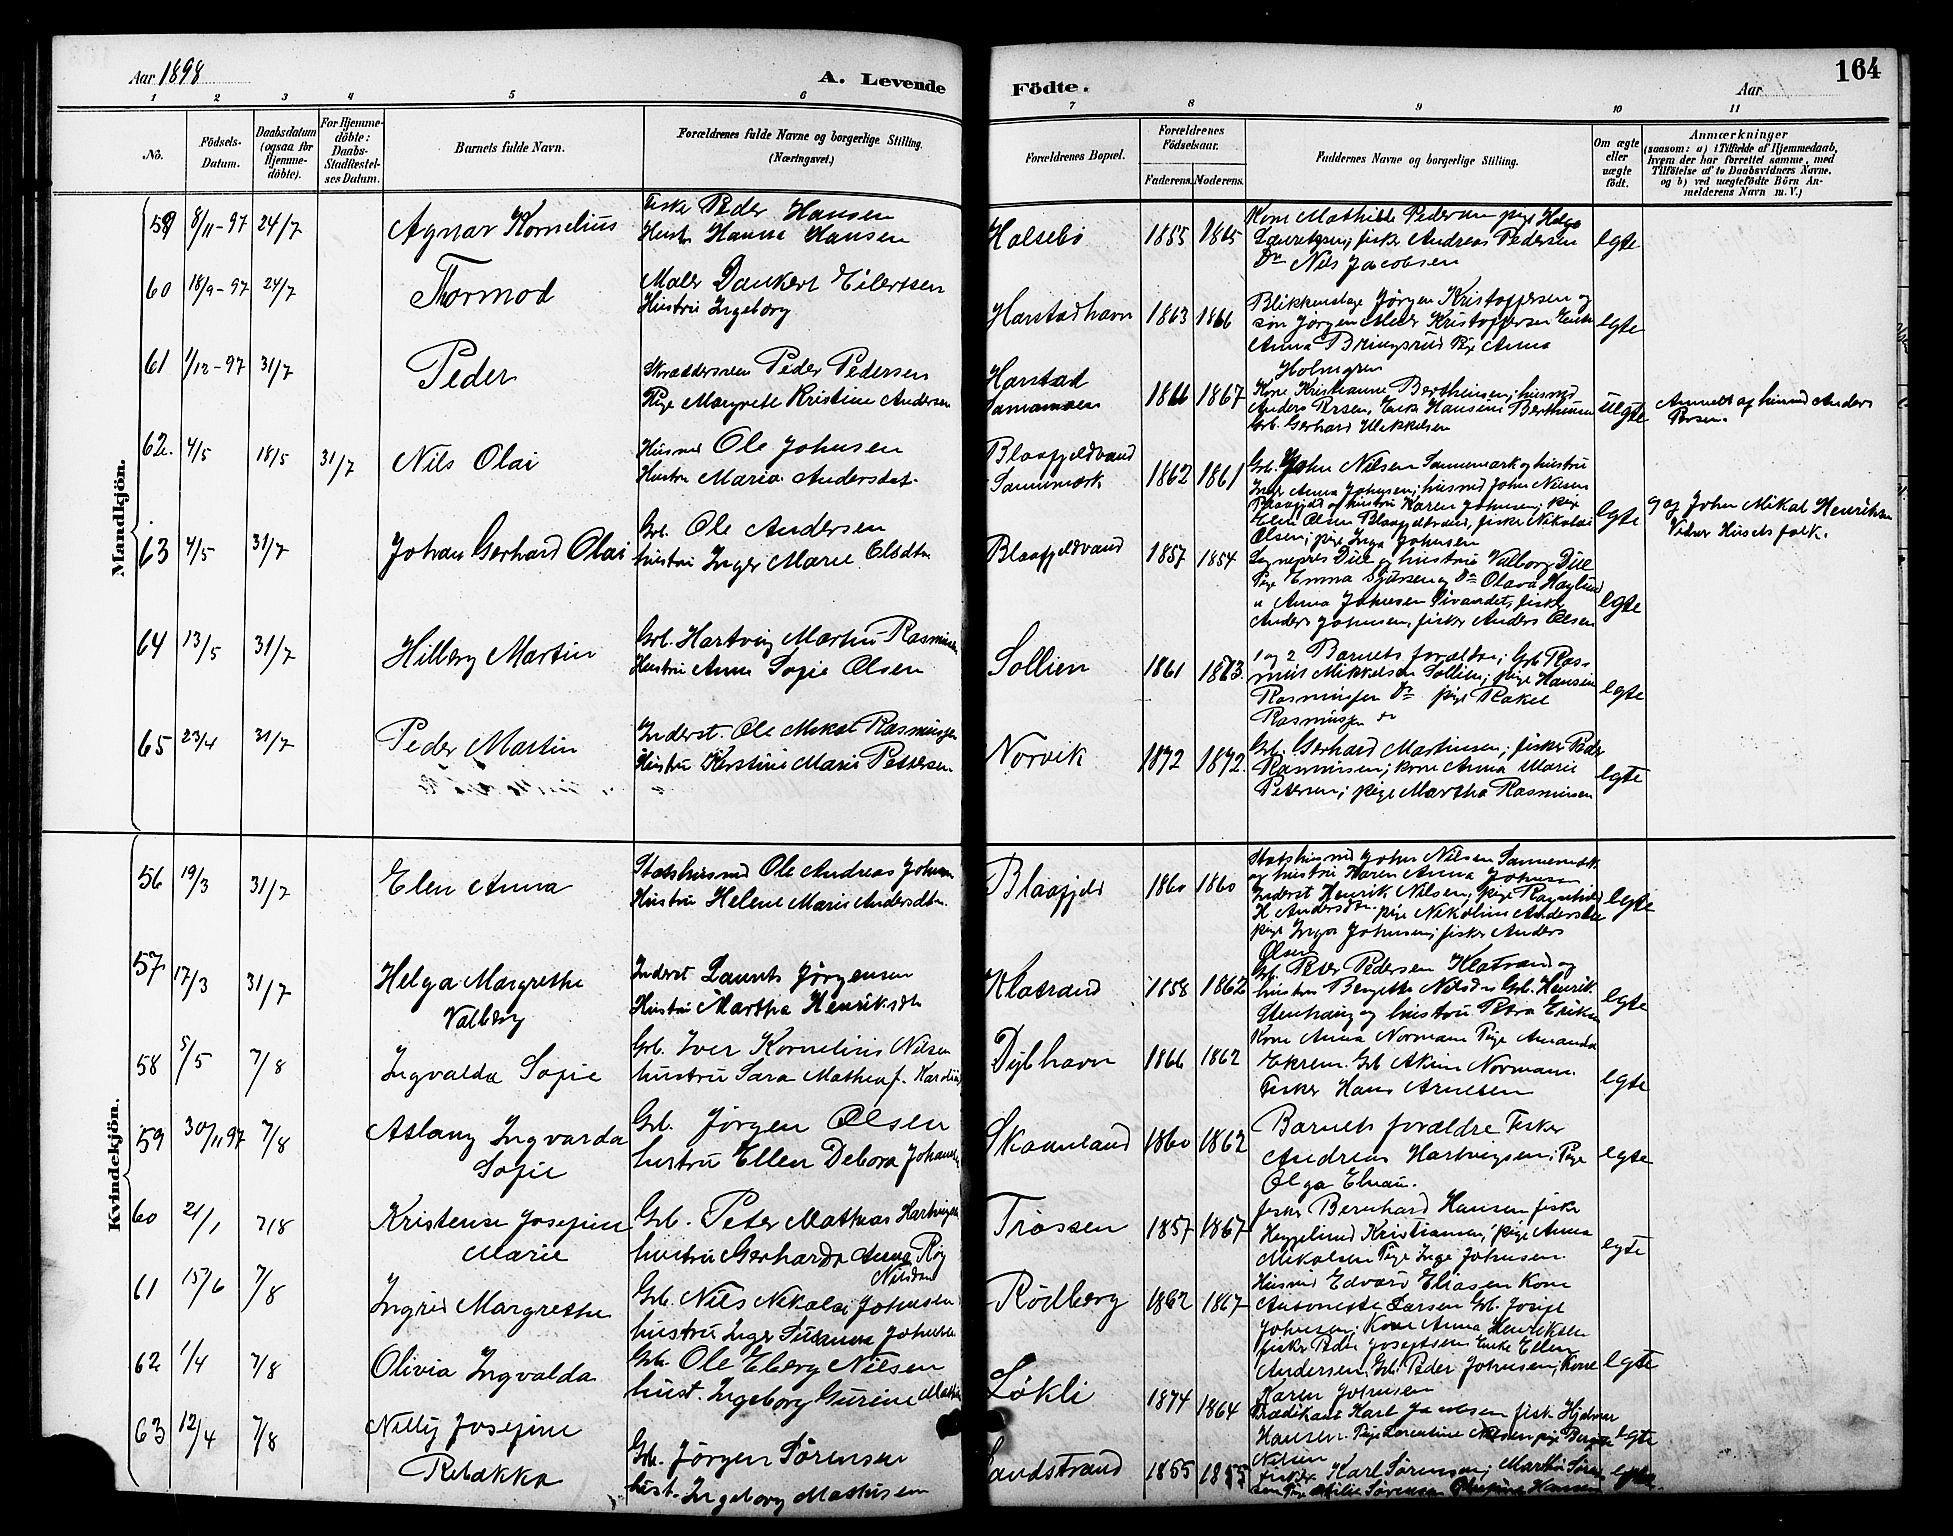 Aar 1898
A. Levende
Födte.
Aar
164
1 2 3 4 5 6 7 8 9 10 11
No.
Födsels-
Datum.
Daabsdatum
(ogsaa for
Hjemme-
döbte).
For Hjemme-
döbte:
Daabs-
Stadfæstel-
ses Datum.
Barnets fulde Navn.
Forældrenes fulde Navne og borgerlige Stilling.
(Næringsvei.)
Forældrenes Bopæl.
Forældrenes
Födselsaar.
Faderens. Moderens.
Faddernes Navne og borgerlige Stilling.
Om ægte
eller
uægte
födt.
Anmærkninger
(saasom: a) i Tilfælde af Hjemmedaab,
hvem der har forrettet samme, med
Tilföielse af to Daabsvidners Navne,
og b) ved uægtefödte Börn An-
melderens Navn m. V.)
Mandkjön.
59 8/11-97 24/7 Agnar Kornelius
Fisker Peder Hansen
Hustr Hanna Hansen
Halsebø 1855 1865
Kone Mathilde Pedersen pige Helga
fisker Andreas Pedersen
Do Nils Jacobsen
egte
60 18/9-97 24/7 Thormod
Maler Dankert Eilertsen
Hustru Ingeborg
Harstadhavn 1863 1866
Jørgen Kristoffersen og
søn Jørgen Kristoffersen Enke
Anna Bringsrud Pige Anna
Holmgren
egte
61 1/12-97 31/7 Peder
Skræddersvein Peder Pedersen
Pige Margrete Kristine Andersen
Harstad
1866 1867
Kone Kristianne Berthinsen; husmd
Anders Persen, Enke Hansine Berthinsen
Grb. Gerhard Mikkelsen
uegte
Anmeldt af husmd Anders
Persen.
62. 4/5 18/5 31/7 Nils Olai
Husmd Ole Johnsen
Hustru Maria Andersdat.
Blaafjeldvand
Sannemark
1862 1861
Grb. John Nilsen Sannemark og hustru
Inger Anna Johnsen; husmd John Nilsen
Blaafjeld og hustru Karen Johnsen; pige
Elen Olsen Blaafjeldvand, fisker Nikolai
Olsen; pige Inga Johnsen
egte
g af John Mikal Henriksen
Vidner Husets folk.
63 4/5 31/7 Johan Gerhard Olai
Grb. Ole Andersen
hustru Inger Marie Olsdtr
Blaafjeldvand 1857 1854
Sogneprest Due og hustru Valborg Due
Pige Emma og Do Olava Haglund
" Anna Johnsen fisker
Anders Johnsen, fisker Anders Olsen
egte
64 13/5 31/7 Hilberg Martin
Grb. Hartvig Martin Rasmussen
Hustru Anne Sofie Olsen
Sollien 1861 1873
1 og 2 Barnets forældre; Grb Ras-
mus Mikkelsen Sollien; pige Hansine
Rasmussen Do pige Rakel
Rasmussen Do
egte
65 23/4 31/7 Peder Martin
Inderst. Ole Mikal Rasmussen
Hustru Kerstine Marie Pettersen
Norvik 1872 1872.
Grb. Gerhard Martinsen; fisker Peder
Rasmussen; kone Anna Marie
Petersen; pige Martha Rasmussen
egte
Kvindekjön.
56 19/3 31/7 Elen Anna
Statshusmd Ole Andreas Johnsen
Hustru Helene Marie Andersdtr.
Blaafjeld 1860 1860
Statshusmd John Nilsen Sannemark
og hustru Karen Anna Johnsen
Inderst Henrik Nilsen, pige Ragnhild
H Andersdtr. pige Nikoline Andersdtr
pige Inga Johnsen; fisker Anders
Olsen
egte
57 17/3 31/7 Helga Margrethe
Valborg
Inderst Laurits Jørgensen
Hustru Martha Henriksdtr
Klatrand 1858 1862
Grb. Peder Pedersen Klatrand og
hustru Bergette Nilsdtr Grb. Henrik
og hustru Petra Eriksen
egte
58 5/5 7/8 Ingvalda Sofie
Grb. Iver Kornelius Nilsen
hustru Sara Mathea f. Karolius
Dybhavn 1866 1862
Kone Anna Normann Pige Amanda
Ekrem. Grb Akim Normann.
Fisker Hans Arnesen
egte
59 30/11 97 7/8 Aslaug Ingvarda
Sofie
Grb. Jørgen Olsen
hustru Ellen Debora Johansen
Skaanland 1860 1862
Barnets forældre Fisker
Andreas Hartvigsen; Pige
Olga
egte
60 21/1 7/8 Kristense Josefine
Marie
Grb. Peter Mathias Hartvigsen
hustru Gerharda Anna Roy
Nilsdtr
Trassen 1857 1867
fisker Bernhard Hansen fisker
Kristiansen; pige Anna
Mikalsen Pige Inga Johnsen
egte
61 15/6 7/8 Ingrid Margrethe
Grb. Nils Nikolai Johnsen
hustru Inger Susanna Johnsen
Rødberg 1862 1867
Husmd Edvard Eliasen Kone
Antonette Larsen Grb. Josef
Johnsen; Kone Anna Henriksen
62 1/4 7/8 Olivia Ingvalda
Grb. Ole Eberg Nilsen
hust. Ingeborg Gurine
Løkli 1874 1864
fisker Peder Josefsen Enke Ellen
Andersen. Grb. Peder Johnsen, Kone
Karen Johnsen
egte
63 12/4 7/8 Nelly Josefine
Rebakka
Grb. Jørgen Sørensen
hust. Ingeborg Mathisen
Sandstrand 1855 1855
Prædikant Karl Jacobsen fisk. Hjalmar
Hansen. Pige Lorentine Nilsen pige
Nilsen
egte
Karl Sørensen; Martin
Sørensen Hansen